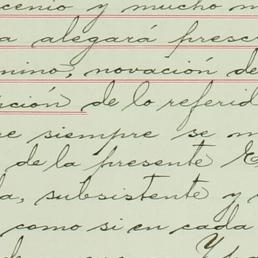 cenio y mucho m
a alegará prescr
mino, novación de
ición de lo referid
re siempre se m
de la presente E
la, subsistente y
como si en cada